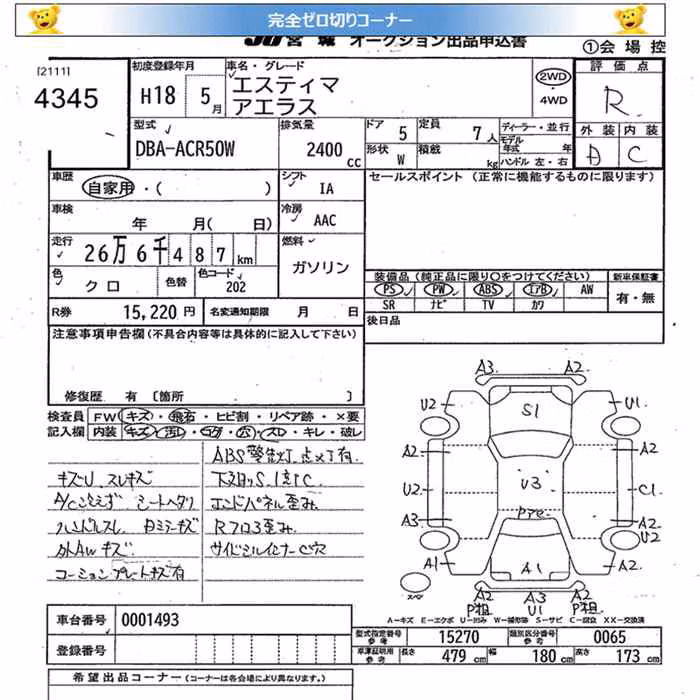 完全ゼロ切りコーナー
JU宮城 オークション出品申込書
①会場控
[2111]
4345
初度登録年月
H18 5月
車名・グレード
エスティマ
アエラス
2WD
・
4WD
評価点
R
外装 内装
D C
型式
DBA-ACR50W
排気量
2400cc
ドア 5
形状 W
定員 7人
積載 kg
ディーラー・並行
モデル年式 年
ハンドル 左・右
車歴
自家用・( )
シフト IA
セールスポイント (正常に機能するものに限ります)
車検
年 月( 日)
冷房 AAC
走行
26万6千487km
燃料
ガソリン
色
クロ
色替
色コード
202
装備品 (純正品に限り○をつけてください)
新車保証書
PS PW ABS エアB AW
有・無
SR ナビ TV カワ
R券 15,220円
名変通知期限 月 日
後日品
注意事項申告欄 (不具合内容等は具体的に記入して下さい)
修復歴 有 [箇所 ]
検査員記入欄
FW キズ・飛石・ヒビ割・リペア跡・×要
内装 キズ・汚レ・コゲ・穴・スレ・キレ・破レ
ABS警告灯点メ丁有
キズU スレキズ
下スリS、1部C
シートヘタリ
エンドパネル歪み
ハンドルスレ
Rフロア歪み
外AWキズ
サイドシルインナーC穴
コーションプレートキズ有
A3 A2
U2 S1 U1
A2 A2
U2 U3 C1
A3 Pアセ A2
U2
A1 A1 A2
スペア
A2 A3 A2
P粗 U1 P粗
A-キズ E-エクボ U-凹み W-補修跡 S-サビ C-腐食 XX-交換済
車台番号 0001493
登録番号
型式指定番号 参考 15270
類別区分番号 参考 0065
車庫証明用 参考
長さ 479cm 幅 180cm 高さ 173cm
希望出品コーナー (コーナーは各会場により異なります。)